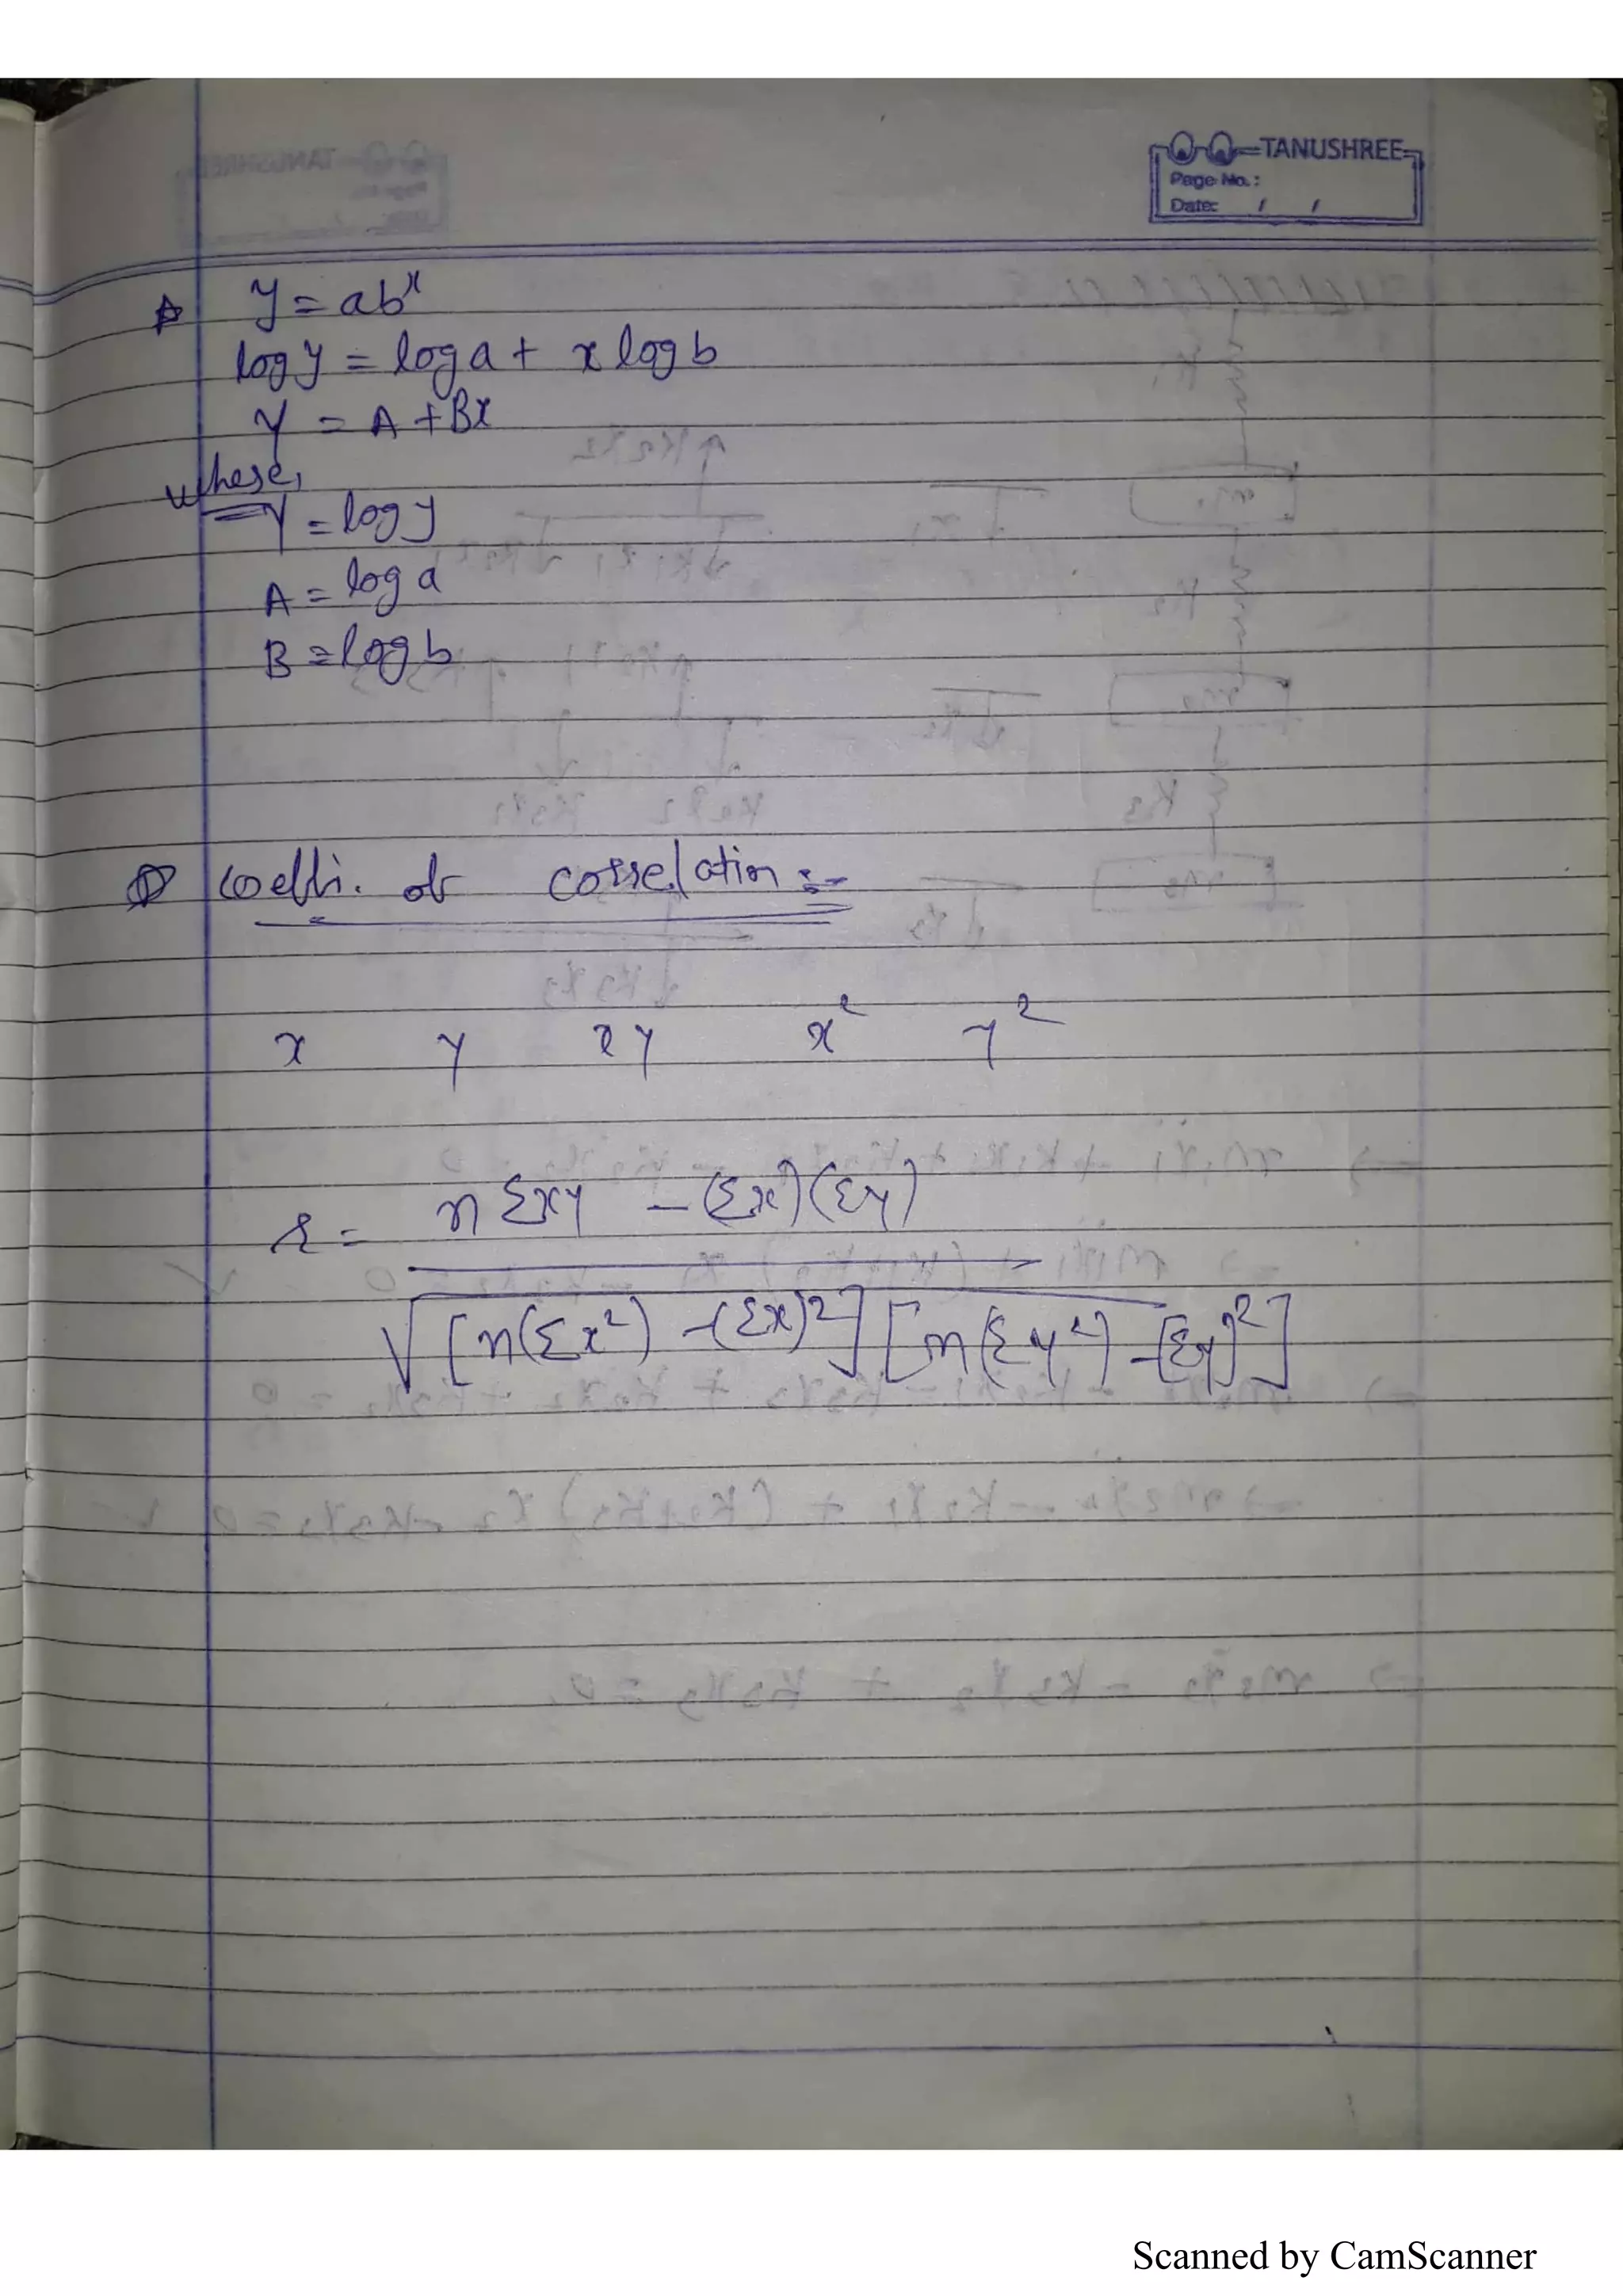 TANUSHREE
Page No.:
Date: / /
y = ab^x
log y = log a + x log b
Y = A + Bx
where,
Y = log y
A = log a
B = log b
Coeffi. of correlation :-
x y xy x² y²
r = n Σxy - (Σx)(Σy)
√[n(Σx²) - (Σx)²][n(Σy²) - (Σy)²]
Scanned by CamScanner